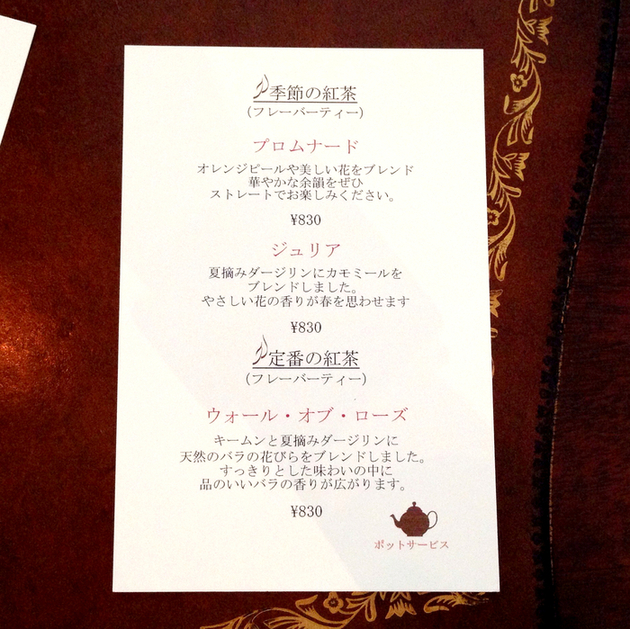 季節の紅茶
(フレーバーティー)
プロムナード
オレンジピールや美しい花をブレンド
華やかな余韻をぜひ
ストレートでお楽しみください。
¥830
ジュリア
夏摘みダージリンにカモミールを
ブレンドしました。
やさしい花の香りが春を思わせます
¥830
定番の紅茶
(フレーバーティー)
ウォール・オブ・ローズ
キームンと夏摘みダージリンに
天然のバラの花びらをブレンドしました。
すっきりとした味わいの中に
品のいいバラの香りが広がります。
¥830
ポットサービス